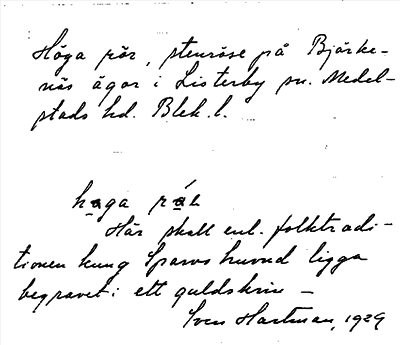 Höga rör, stenröse på Björke-
näs ägor i Listerby sn. Medel-
stads hd. Blek. l.
haga
Här skall enl. folktradi-
tionen kung Sparvs huvud ligga
begravet i ett guldskrin –
Sven Hartman, 1929